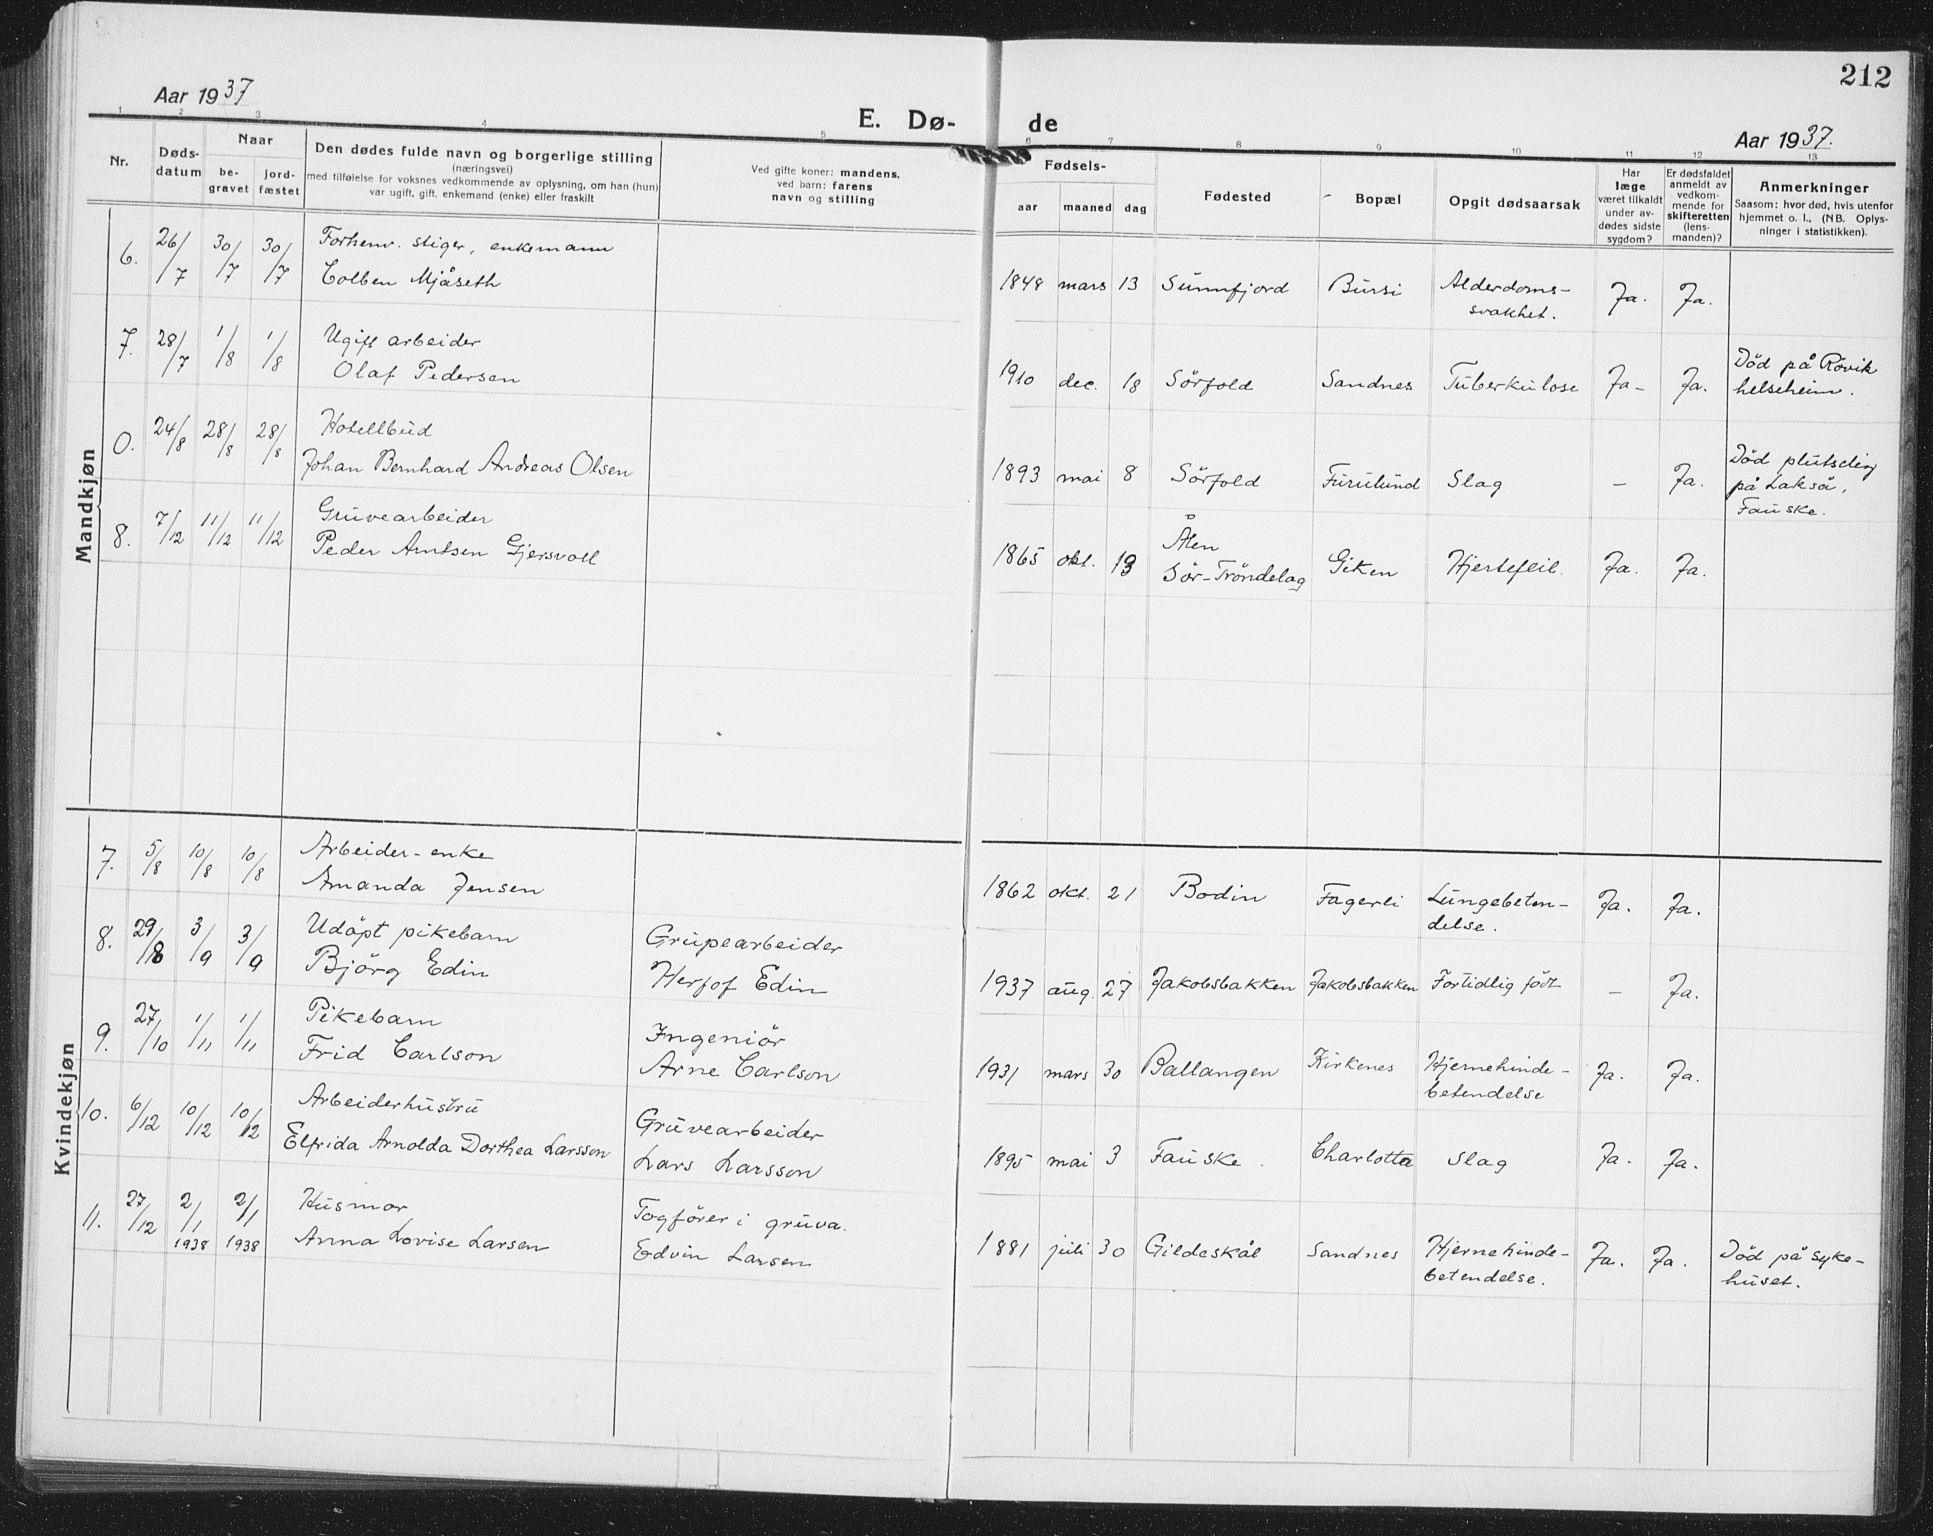 212
Aar 1937
E. Dø-
de
Aar 1937.
1 2 3 4 5 6 7 8 9 10 11 12 13
Nr.
Døds-
datum
Naar
be-
gravet
jord-
fæstet
Den dødes fulde navn og borgerlige stilling
(næringsvei)
med tilføielse for voksnes vedkommende av oplysning, om han (hun)
var ugift, gift, enkemand (enke) eller fraskilt
Ved gifte koner: mandens,
ved barn: farens
navn og stilling
Fødsels-
aar maaned dag
Fødested
Bopæl
Opgit dødsaarsak
Har
læge
været tilkaldt
under av-
dødes sidste
sygdom?
Er dødsfaldet
anmeldt av
vedkom-
mende for
skifteretten
(lens-
manden)?
Anmerkninger
Saasom: hvor død, hvis utenfor
hjemmet o. l., (NB. Oplys-
ninger i statistikken).
Mandkjøn
6. 26/7 30/7 30/7 Forhenv. stiger, enkemann
Colben Mjåseth
1848 mars 13 Sunnfjord Bursi Alderdoms-
svakhet. Ja. Ja.
7. 28/7 1/8 1/8 Ugift arbeider
Olaf Pedersen
1910 dec. 18 Sörfold Sandnes Tuberkulose Ja- Ja. Död på Rövik
helseheim.
0. 24/8 28/8 28/8 Hotellbud
Johan Bernhard Andreas Olsen
1893 mai 8 Sörfold Furulund Slag – Ja. Död plutselig
på Lakså,
Fauske.
8. 7/12 11/12 11/12 Gruvearbeider
Peder Arntsen Gjersvoll
1865 okt. 13 Ålen
Sör-Tröndelag Giken Hjertefeil. Ja. Ja.
Kvindekjøn
7. 5/8 10/8 10/8 Arbeider-enke
Amanda Jensen
1862 okt. 21 Bodin Fagerli Lungebeten-
delse. Ja. Ja.
8. 29/8 3/9 3/9 Udöpt pikebarn
Björg Edin
Grupearbeider
Herjof Edin
1937 aug. 27 Jakobsbakken Jakobsbakken Fortidlig född – Ja.
9. 27/10 1/11 1/11 Pikebarn
Frid Carlson
Ingeniör
Arne Carlson
1931 mars 30 Ballangen Kirkenes Hjernehinde-
betendelse Ja. Ja.
10. 6/12 10/12 10/12 Arbeiderhustru
Elfrida Arnolda Dorthea Larsson
Gruvearbeider
Lars Larsson
1895 mai 3 Fauske. Charlotta Slag Ja. Ja.
11. 27/12 2/1 1938 2/1 1938 Husmor
Anna Lovise Larsen
Togförer i gruva.
Edvin Larsen
1881 juli 30 Gildeskål Sandnes Hjernehinde-
betendelse. Ja. Ja. Död på syke-
huset.